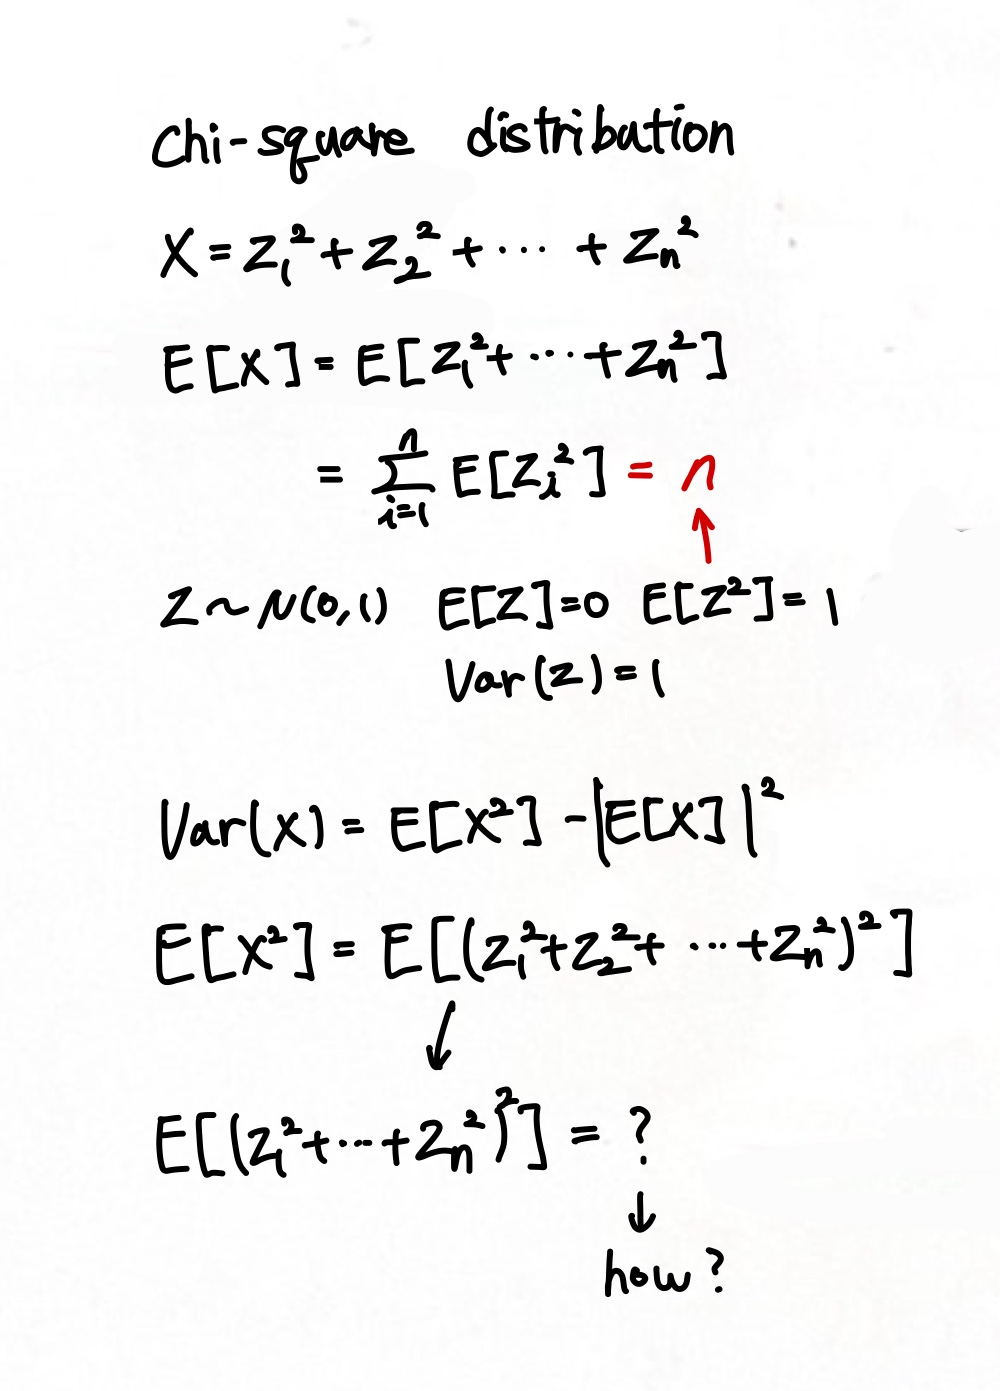 Chi-square distribution
X = Z₁² + Z₂² + ··· + Zₙ²
E[X] = E[Z₁² + ··· + Zₙ²]
= ∑ᵢ₌₁ⁿ E[Zᵢ²] = n
↑
Z ~ N(0,1) E[Z]=0 E[Z²]=1
Var(Z)=1
Var(X) = E[X²] - |E[X]|²
E[X²] = E[(Z₁² + Z₂² + ··· + Zₙ²)²]
↓
E[(Z₁² + ··· + Zₙ²)²] = ?
↓
how?